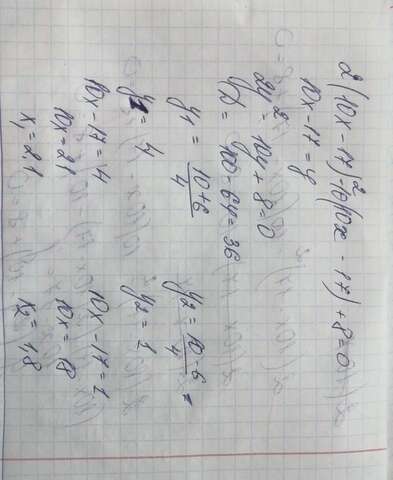 2(10x-17)²-10(10x-17)+8=0
10x-17=y
2y²-10y+8=0
√D=100-64=36
y1=10+6/4 y2=10-6/4=
y1=4 y2=1
10x-17=4 10x-17=1
10x=21 10x=18
x₁=2,1 x₂=1,8